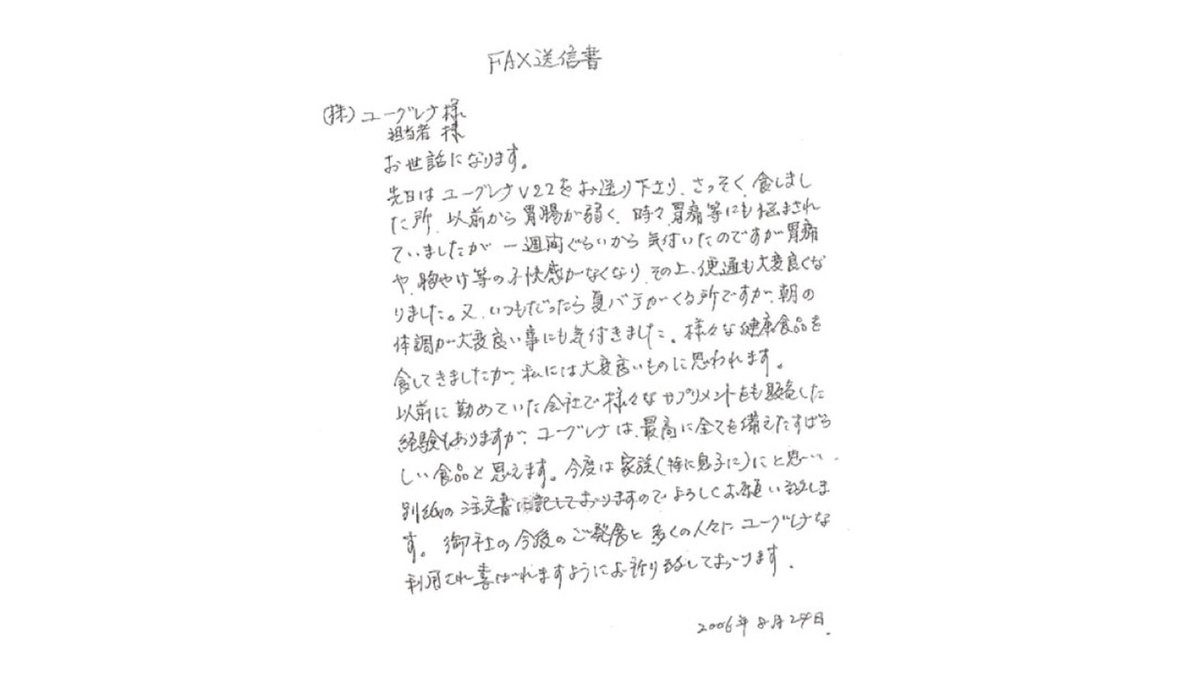 FAX送信書
(株)ユーグレナ様
担当者 様
お世話になります。
先日は ユーグレナV22をお送り下さり、さっそく、食しまし
た所、以前から胃腸が弱く、時々胃痛等にも悩まされ
ていましたが 一週間ぐらいから 気付いたのですが胃痛
や、胸やけ等の不快感がなくなり、その上、便通も大変良くな
りました。又、いつもだったら夏バテがくる所ですが、朝の
体調が大変良い事にも気付きました。様々な健康食品を
食してきましたが、私には大変良いものに思われます。
以前に勤めていた会社で様々なサプリメントをも販売した
経験もありますが、ユーグレナは、最高に全てを備えたすばら
しい食品と思えます。今度は家族(特に息子に)にと思い、
別紙の注文書に記しておりますのでよろしくお願い致しま
す。御社の今後のご発展と多くの人々にユーグレナな
利用され喜ばれますようにお祈り致しております。
2006年8月24日.